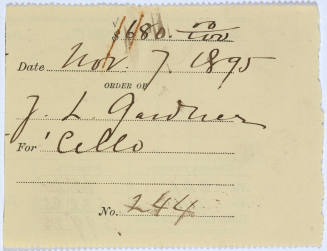 $1680. no/100
Date Nov. 7. 1895
ORDER OF
J. L. Gardner
For 'Cello
No. 244